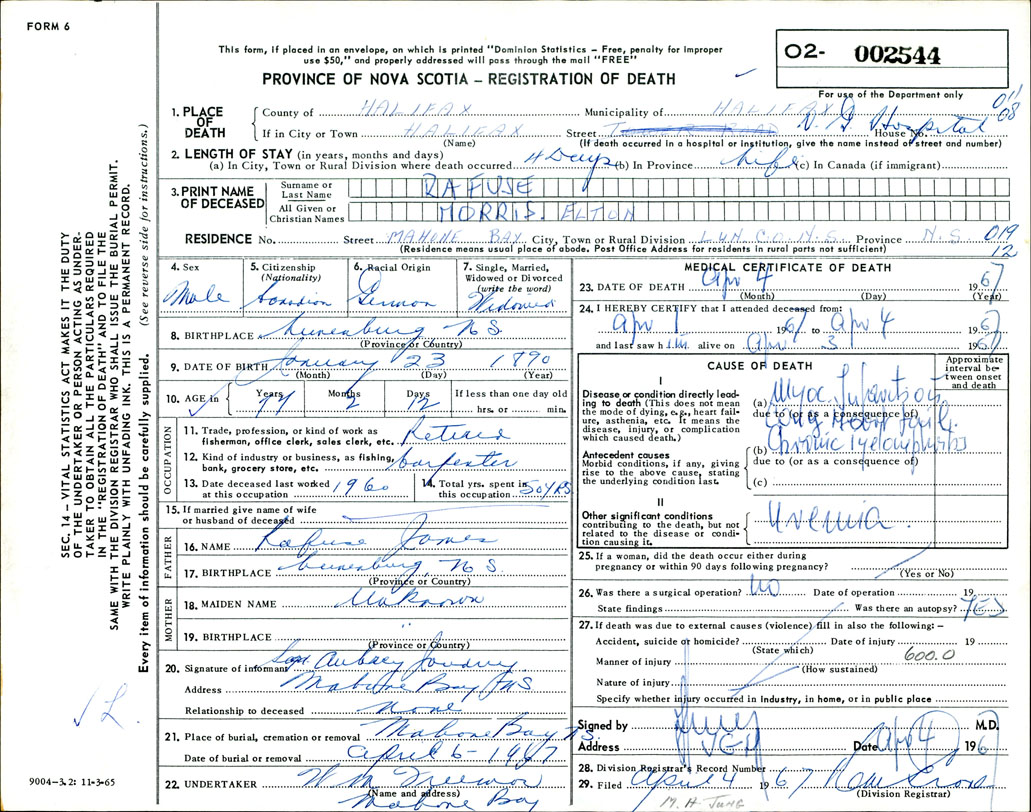 FORM 6
This form, if placed in an envelope, on which is printed "Dominion Statistics – Free, penalty for improper
use $50," and properly addressed will pass through the mail "FREE"
PROVINCE OF NOVA SCOTIA – REGISTRATION OF DEATH
O2- 002544
For use of the Department only
011
08
1. PLACE OF DEATH
County of HALIFAX Municipality of HALIFAX
If in City or Town HALIFAX Street House No. V. G. Hospital
(Name) (If death occurred in a hospital or institution, give the name instead of street and number)
2. LENGTH OF STAY (in years, months and days)
(a) In City, Town or Rural Division where death occurred 4 Days (b) In Province Life (c) In Canada (if immigrant)
3. PRINT NAME OF DECEASED
Surname or Last Name RAFUSE
All Given or Christian Names MORRIS. ELTON
RESIDENCE No. Street MAHONE BAY City, Town or Rural Division LUN. CO. N.S. Province N.S. 019
(Residence means usual place of abode. Post Office Address for residents in rural parts not sufficient) 12
4. Sex Male
5. Citizenship (Nationality) Canadian
6. Racial Origin German
7. Single, Married, Widowed or Divorced (write the word) Widowed
8. BIRTHPLACE Lunenburg, N S.
(Province or Country)
9. DATE OF BIRTH January 23 1890
(Month) (Day) (Year)
10. AGE in Years 77 Months 2 Days 12 If less than one day old
hrs. or min.
OCCUPATION
11. Trade, profession, or kind of work as
fisherman, office clerk, sales clerk, etc. Retired
12. Kind of industry or business, as fishing,
bank, grocery store, etc. Carpenter
13. Date deceased last worked
at this occupation 1960
14. Total yrs. spent in
this occupation 50 YRS
15. If married give name of wife
or husband of deceased
FATHER
16. NAME Rafuse James
17. BIRTHPLACE Lunenburg, N S.
(Province or Country)
MOTHER
18. MAIDEN NAME Unknown
19. BIRTHPLACE "
(Province or Country)
20. Signature of informant Aubrey
Address Mahone Bay NS.
Relationship to deceased None
21. Place of burial, cremation or removal Mahone Bay N.S.
Date of burial or removal April 6 - 1967
22. UNDERTAKER
(Name and address)
Mahone Bay
MEDICAL CERTIFICATE OF DEATH
23. DATE OF DEATH Apr 4 1967
(Month) (Day) (Year)
24. I HEREBY CERTIFY that I attended deceased from:
Apr 1 1967 to Apr 4 1967
and last saw h im alive on Apr 3 1967
CAUSE OF DEATH
Approximate interval between onset and death
I
Disease or condition directly leading to death (This does not mean the mode of dying, e.g., heart failure, asthenia, etc. It means the disease, injury, or complication which caused death.)
(a) Myoc. Infarction
due to (or as a consequence of)
Cong Heart Fail.
Antecedent causes
Morbid conditions, if any, giving rise to the above cause, stating the underlying condition last.
(b) Chronic Pyelonephritis
due to (or as a consequence of)
(c)
II
Other significant conditions
contributing to the death, but not related to the disease or condition causing it.
Uremia.
25. If a woman, did the death occur either during
pregnancy or within 90 days following pregnancy?
(Yes or No)
26. Was there a surgical operation? No Date of operation 19
State findings Was there an autopsy? YES
27. If death was due to external causes (violence) fill in also the following: –
Accident, suicide or homicide? Date of injury 19
(State which) 600.0
Manner of injury
(How sustained)
Nature of injury
Specify whether injury occurred in Industry, in home, or in public place
Signed by M.D.
Address VGH Date Apr 4 196
28. Division Registrar's Record Number
29. Filed April 4 1967
(Division Registrar)
SEC. 14 – VITAL STATISTICS ACT MAKES IT THE DUTY
OF THE UNDERTAKER OR PERSON ACTING AS UNDER-
TAKER TO OBTAIN ALL THE PARTICULARS REQUIRED
IN THE "REGISTRATION OF DEATH" AND TO FILE THE
SAME WITH THE DIVISION REGISTRAR WHO SHALL ISSUE THE BURIAL PERMIT.
WRITE PLAINLY WITH UNFADING INK. THIS IS A PERMANENT RECORD.
Every item of information should be carefully supplied. (See reverse side for instructions.)
9004–3.2: 11-3-65